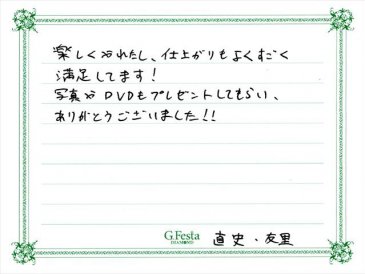 楽しくやれたし、仕上がりもよくすごく
満足してます!
写真やDVDもプレゼントしてもらい、
ありがとうございました!!
G.Festa
DIAMOND
直史・友里